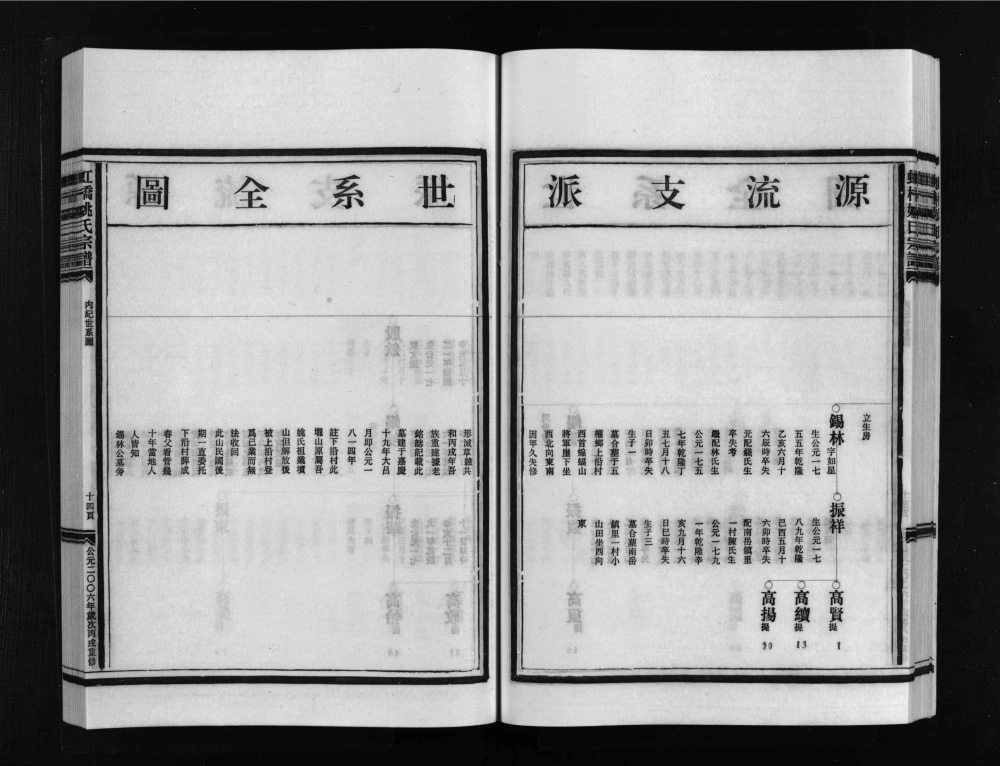 源流支派
世系全圖
立生房
錫林字如星
生公元一七
五五年乾隆
乙亥六月十
六辰時卒失
元配錢氏生
卒失考
繼配林氏生
公元一七五
七年乾隆丁
丑七月十八
日卯時卒失
生子一
墓合葬于五
權鄉上沿村
西首蝙蝠山
將軍崖下坐
西北向東南
因年久失修
振祥
生公元一七
八九年乾隆
己酉五月十
六卯時卒失
配南岳鎮里
一村陳氏生
公元一七九
一年乾隆辛
亥九月十六
日巳時卒失
生子三
墓合葬南岳
鎮里一村小
山田坐西向
東
高賢提 1
高續提 13
高揚提 20
形減草雜共
和丙戌年吾
族重建據老
銘誌記載此
墓建于嘉慶
十九年大呂
月即公元一
八一四年
註下沿村此
壠山原屬吾
姚氏祖職墳
山但解放後
被上沿村登
爲已業而無
法收回
此山民國後
期一直委托
下沿村薛成
春父看管幾
十年當地人
人皆知
錫林公墓旁
虹橋姚氏宗譜
內紀世系圖
十四頁
公元二〇〇六年歲次丙戌重修